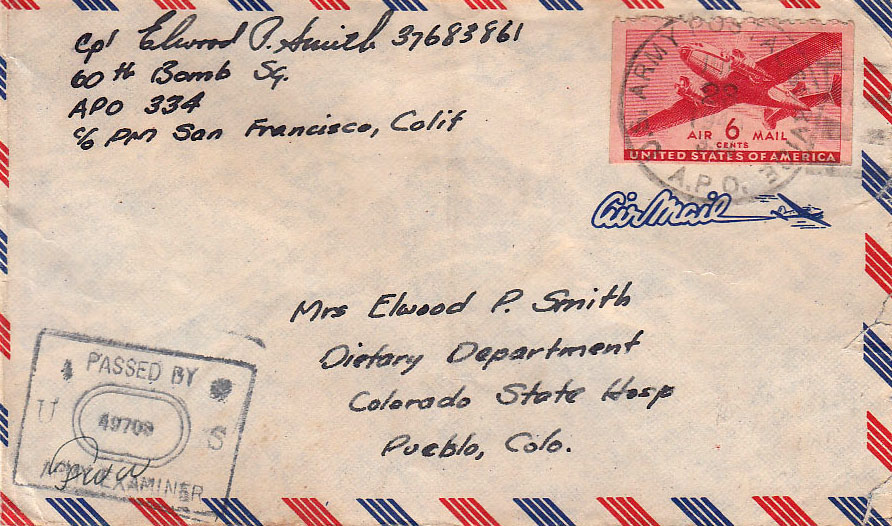 Cpl Elwood P. Smith 37683861
60th Bomb Sq.
APO 334
c/o PM San Francisco, Calif
U.S. ARMY POSTAL SERVICE
A.P.O.
AIR 6 MAIL
CENTS
UNITED STATES OF AMERICA
Air Mail
Mrs Elwood P. Smith
Dietary Department
Colorado State Hosp
Pueblo, Colo.
PASSED BY
S
EXAMINER